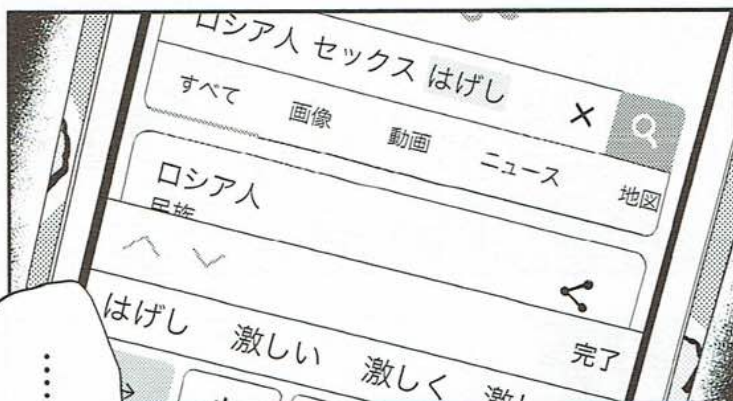 ロシア人 セックス はげし ×
すべて 画像 動画 ニュース 地図
ロシア人
民族
完了
はげし 激しい 激しく 激し
……